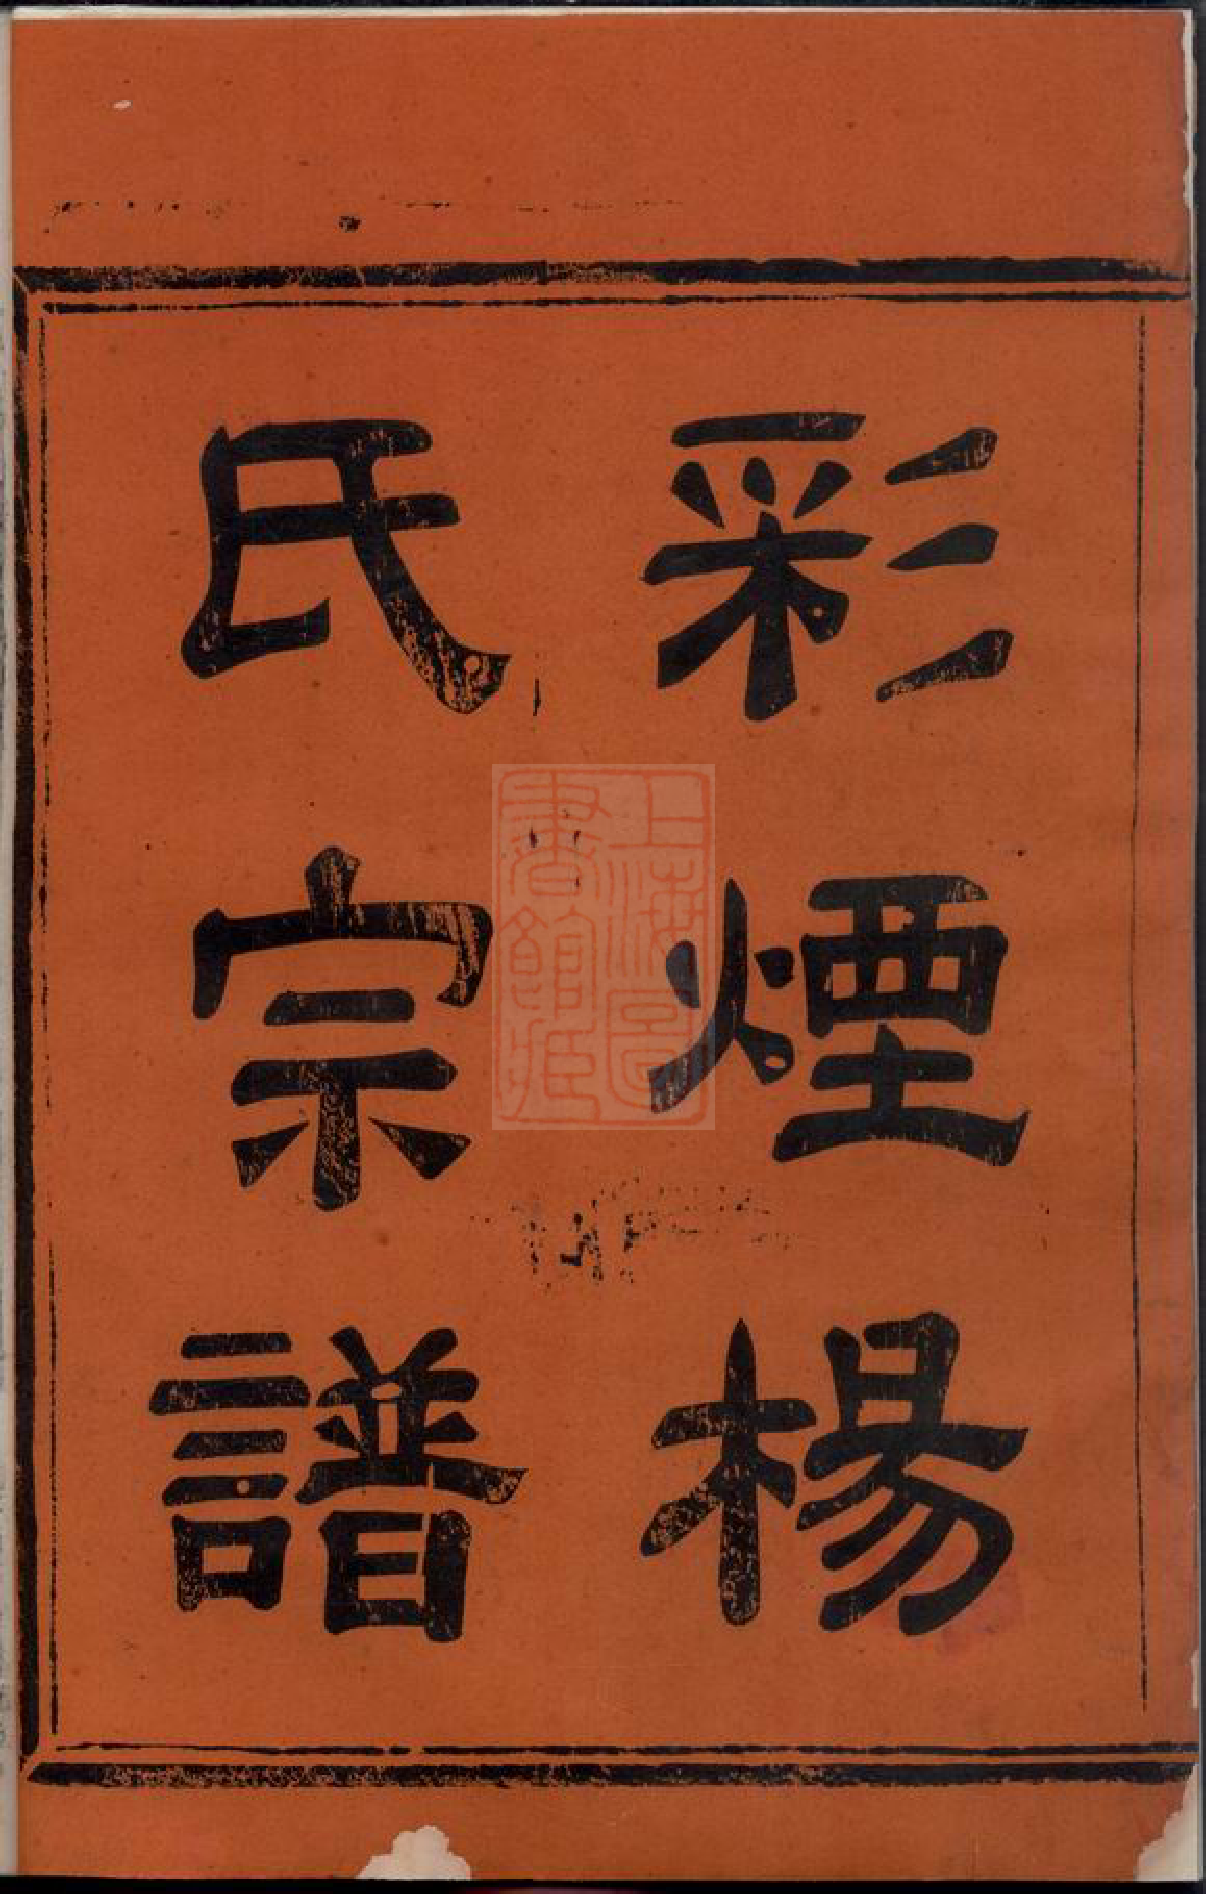 彩煙楊
氏宗譜
上海圖
書館藏